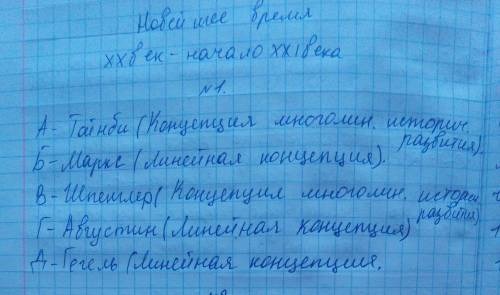 Новейшее время
XX век - начало XXI века
№1.
А- Тайнби (Концепция многолин. историч. развития).
Б- Маркс (Линейная концепция).
В- Шпенглер (Концепция многолин. историч. развития)
Г- Августин (Линейная концепция)
Д- Гегель (Линейная концепция.